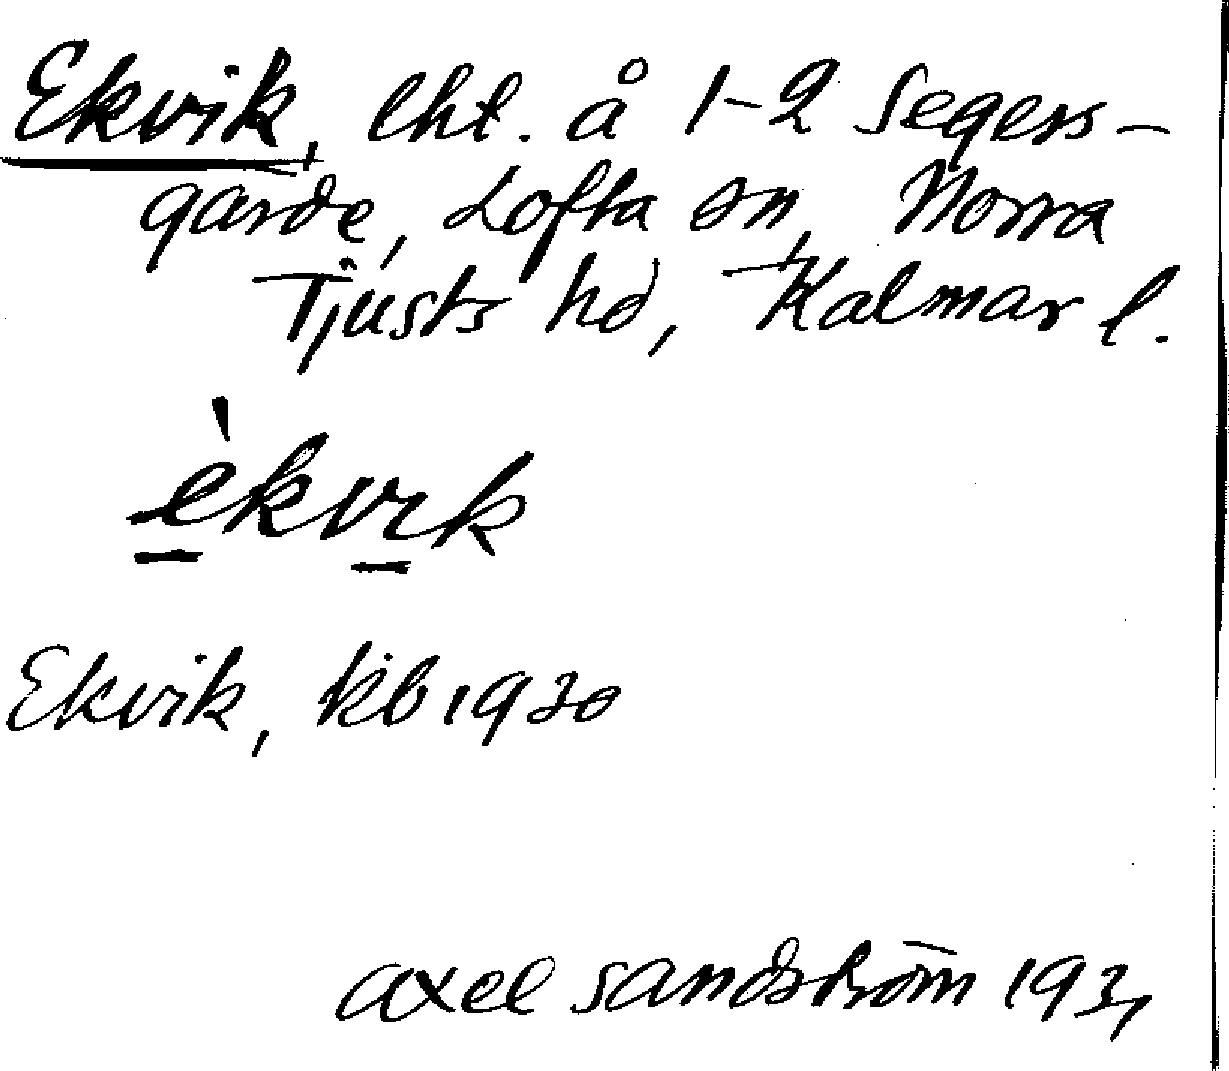 Ekvik, lht. å 1-2 Segers-
garde, Lofta sn, Norra
Tjusts hd, Kalmar l.
èkvik
Ekvik, kb 1930
Axel Sandström 1931